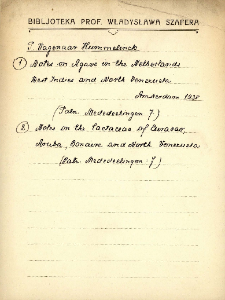 BIBLJOTEKA PROF. WŁADYSŁAWA SZAFERA
P. Wagenaar Hummelinck
1) Notes on Agave in the Netherlands
West Indies and North Venezuela
Amsterdam 1938
(Publ. Mededeelingen 7.)
2) Notes on the Cactaceae of Curaçao,
Aruba, Bonaire and North Venezuela
(Publ. Mededeelingen 7)